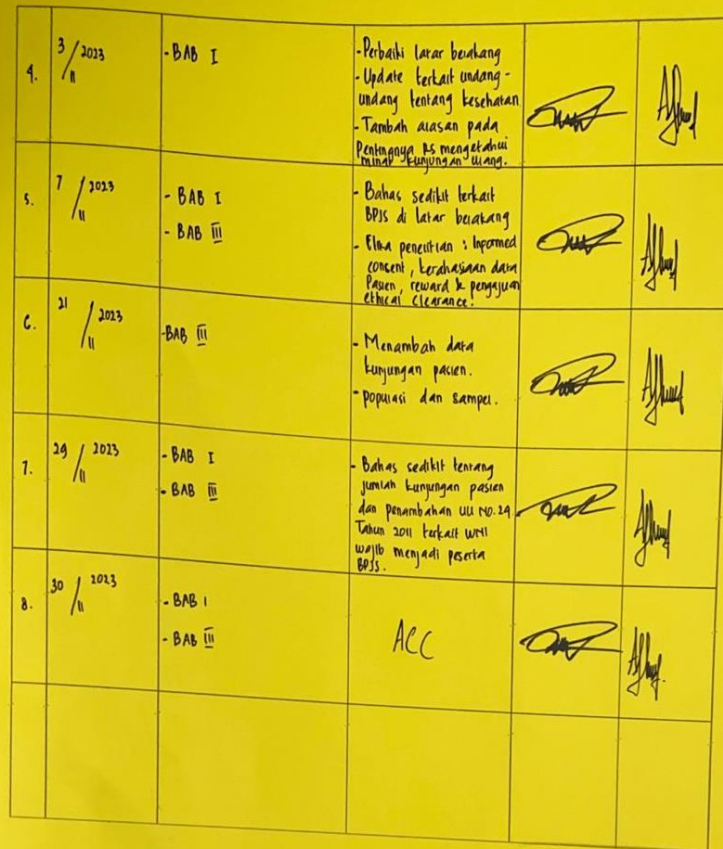 4.
3/11 2023
- BAB I
- Perbaiki latar belakang
- Update terkait undang-
undang tentang kesehatan
- Tambah alasan pada
Pentingnya RS mengetahui
minat kunjungan ulang.
5.
7/11 2023
- BAB I
- BAB III
- Bahas sedikit terkait
BPJS di latar belakang
- Etika penelitian : Informed
consent, kerahasiaan data
Pasien, reward & pengajuan
ethical clearance.
6.
21/11 2023
- BAB III
- Menambah data
kunjungan pasien.
- populasi dan sampel.
7.
29/11 2023
- BAB I
- BAB III
- Bahas sedikit tentang
jumlah kunjungan pasien
dan penambahan UU NO.24
Tahun 2011 terkait WNI
wajib menjadi peserta
BPJS.
8.
30/11 2023
- BAB I
- BAB III
ACC